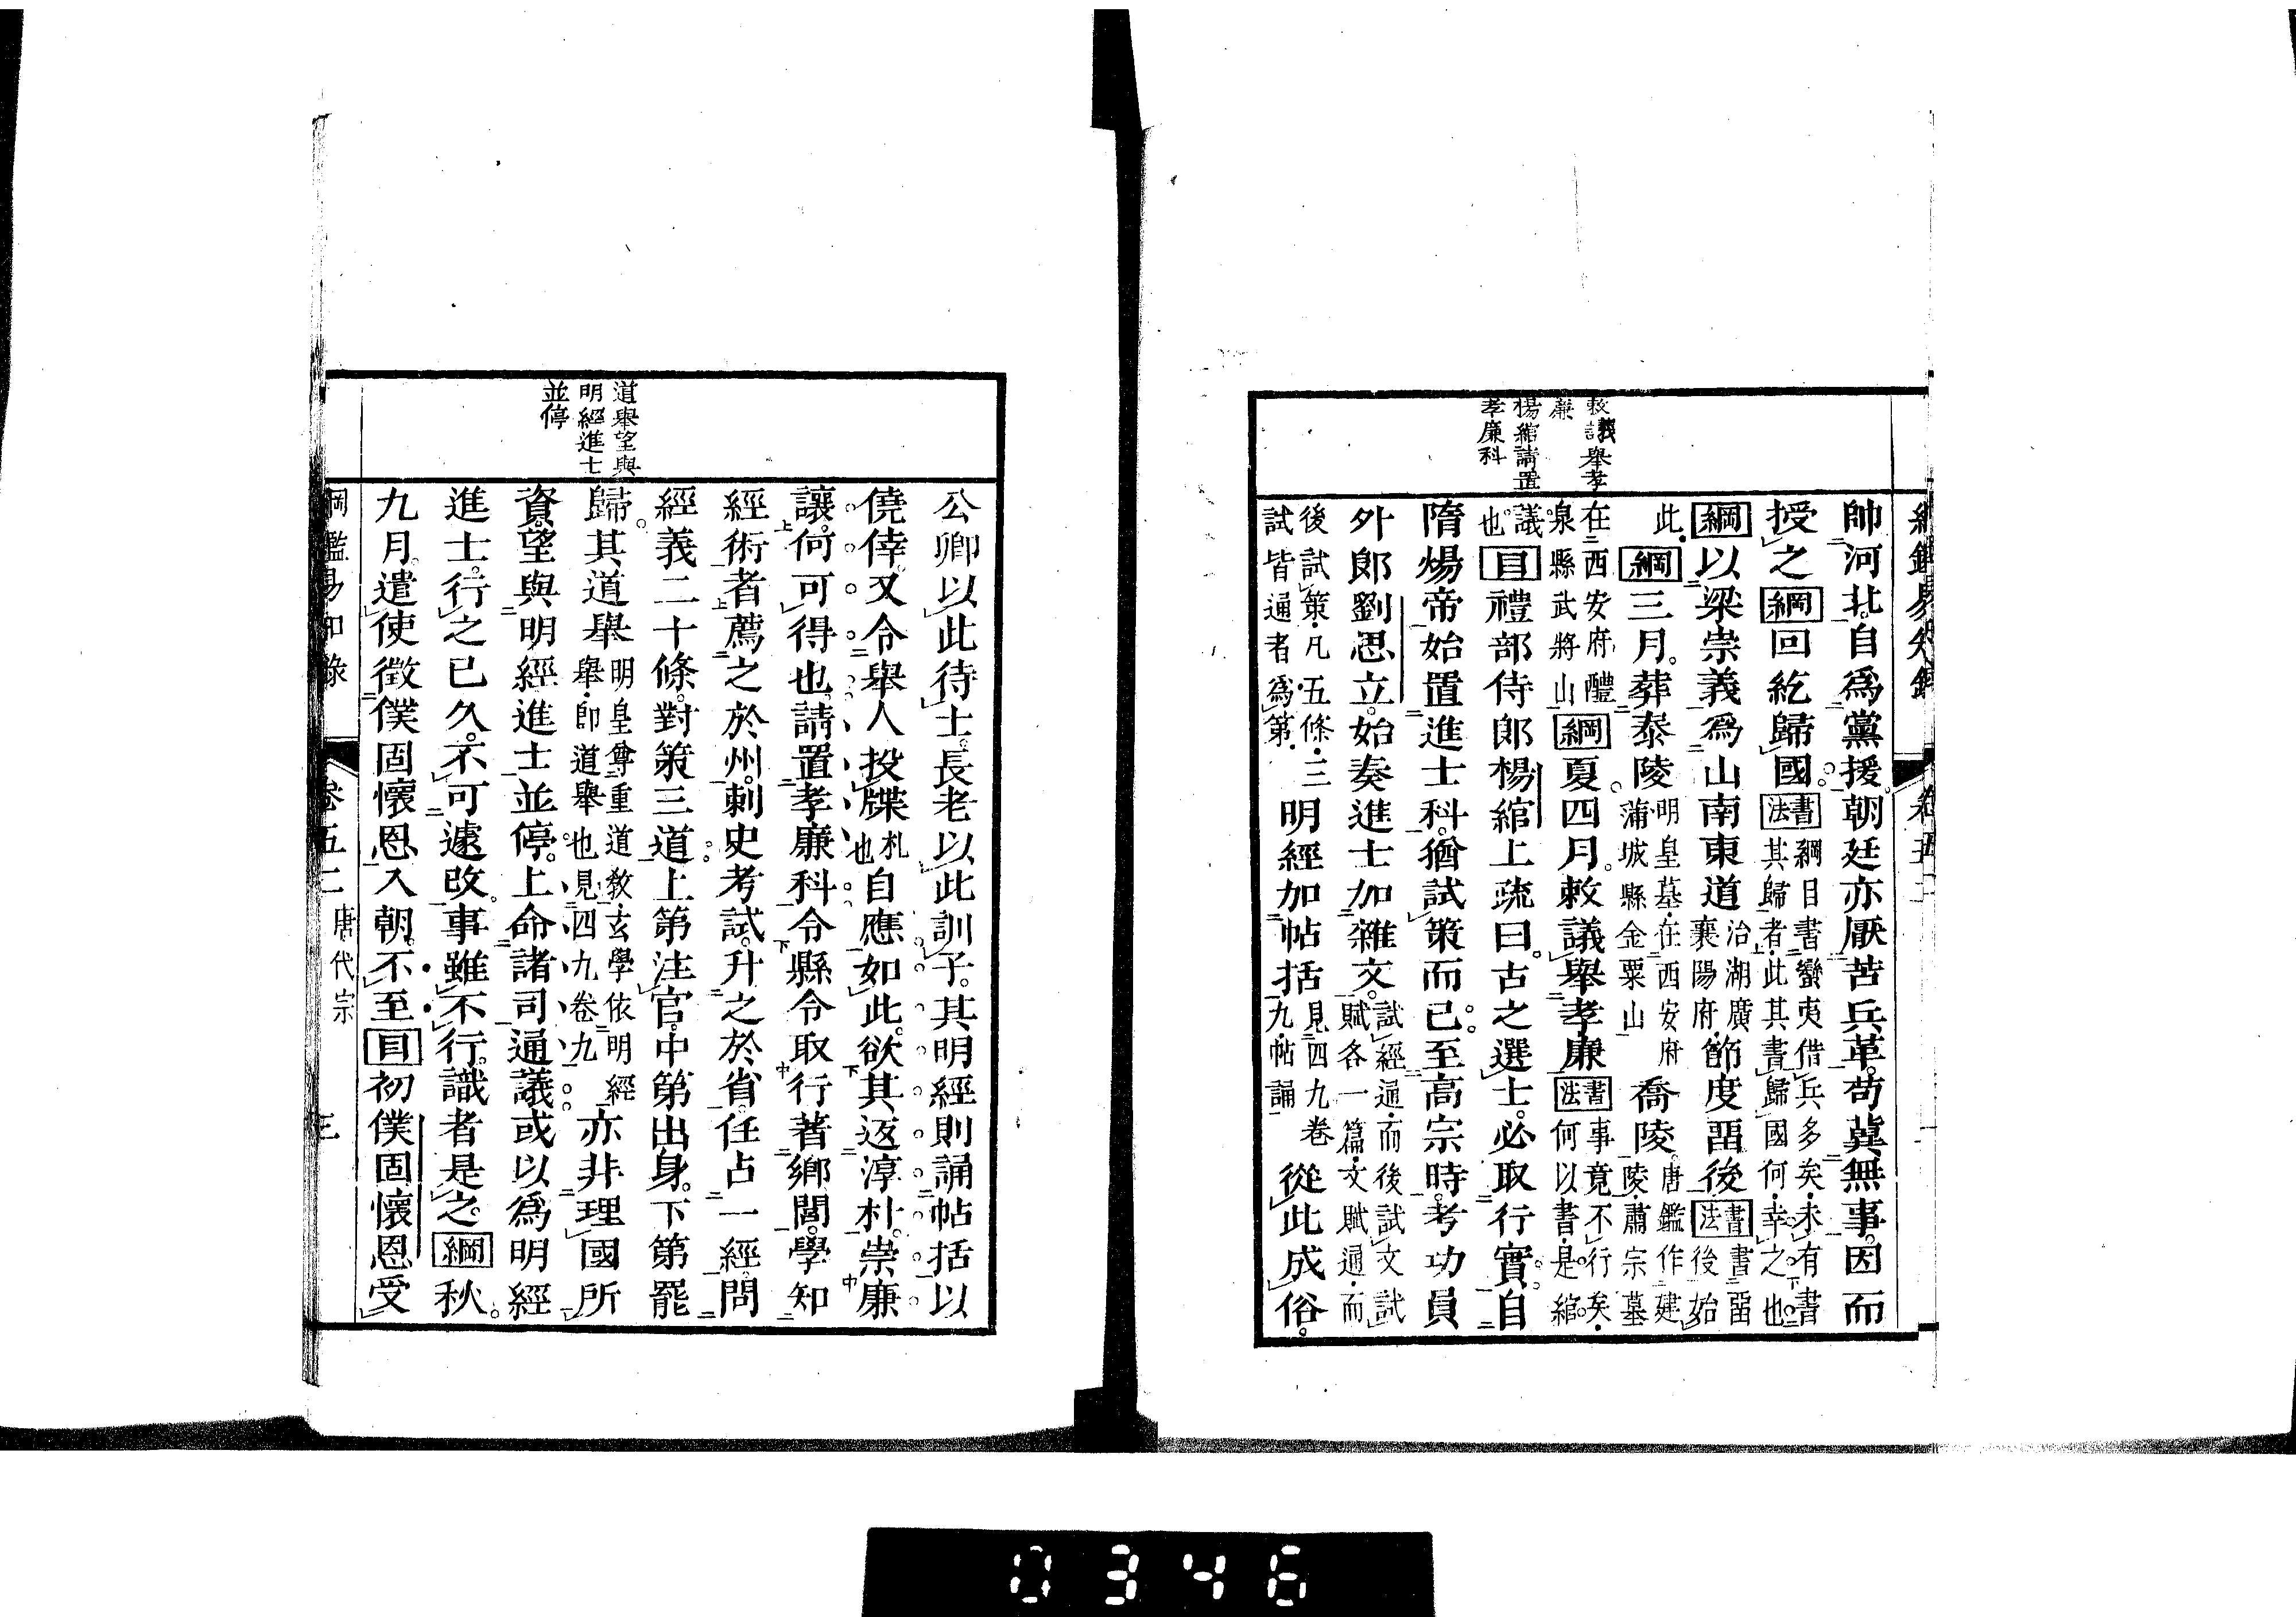 敕議舉孝
廉
楊綰請置
孝廉科
帥河北。自爲黨援。朝廷亦厭苦兵革。苟冀無事。因而
授之綱回紇歸國。書法綱目書蠻夷借兵多矣。未有書
其歸者。此其書歸國何。幸之也
綱以梁崇義爲山南東道治湖廣
襄陽府。節度畱後書法書畱
後始
此。綱三月。葬泰陵明皇墓。在西安府
蒲城縣金粟山喬陵。唐鑑作建
陵。肅宗墓
在西安府醴
泉縣武將山綱夏四月。敕議舉孝廉書法事竟不行矣。
何以書。是綰
議
也。目禮部侍郞楊綰上疏曰。古之選士。必取行實。自
隋煬帝始置進士科。猶試策而已。至高宗時。考功員
外郞劉思立。始奏進士加雜文。試經通。而後試文試
賦各一篇。文賦通。而
後試策。凡五條。三
試皆通者爲第。明經加帖括見四九卷
九。帖誦從此成俗。
道舉望與
明經進士
並停
公卿以此待士。長老以此訓子。其明經則誦帖括以
僥倖。又令舉人投牒札
也自應如此。欲其返淳朴。崇廉
讓。何可得也。請置孝廉科。令縣令取行著鄉閭。學知
經術者。薦之於州。刺史考試。升之於省。任占一經。問
經義二十條。對策三道。上第注官。中第出身。下第罷
歸。其道舉明皇尊重道敎。玄學依明經
舉。卽道舉也。見四九卷九亦非理國所
資。望與明經進士並停。上命諸司通議。或以爲明經
進士。行之已久。不可遽改。事雖不行。識者是之。綱秋。
九月。遣使徵僕固懷恩入朝。不至目初僕固懷恩受
綱鑑易知錄　卷五二　唐代宗　三
0346